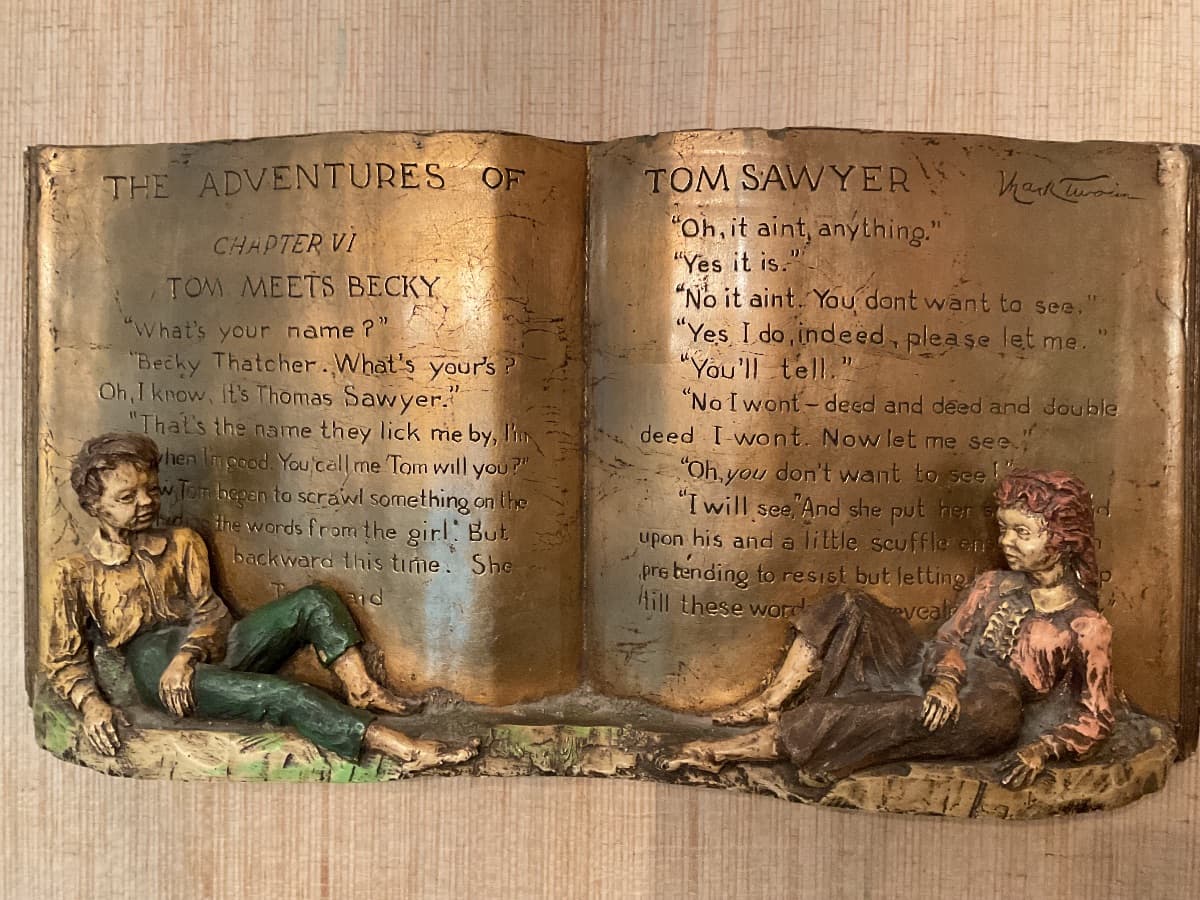 THE ADVENTURES OF
CHAPTER VI
TOM MEETS BECKY
"What's your name?"
"Becky Thatcher. What's your's?
Oh, I know. It's Thomas Sawyer."
"That's the name they lick me by, I'm
when I'm good. You call me Tom will you?"
Tom began to scrawl something on the
the words from the girl. But
backward this time. She
TOM SAWYER
Mark Twain
"Oh, it aint, anything."
"Yes it is."
"No it aint. You dont want to see."
"Yes I do, indeed, please let me."
"You'll tell."
"No I wont - deed and deed and double
deed I wont. Now let me see."
"Oh, you don't want to see!"
"I will see." And she put her
upon his and a little scuffle
pretending to resist but letting
till these